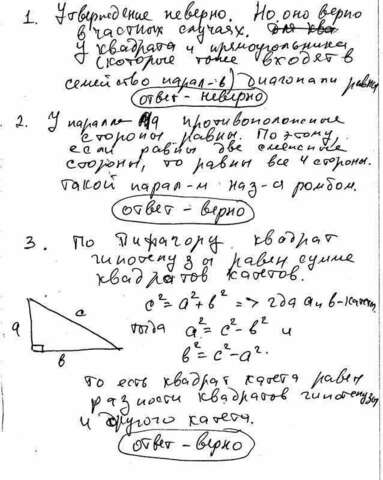 1. Утверждение неверно. Но оно верно
в частных случаях.
У квадрата и прямоугольника
(которые тоже входят в
семейство парал-в) диагонали равны
ответ - неверно
2. У паралле противоположные
стороны равны. Поэтому,
если равны две смежные
стороны, то равны все 4 стороны.
Такой парал-м наз-ся ромбом.
ответ - верно
3. По Пифагору квадрат
гипотенузы равен сумме
квадратов катетов.
c² = a² + b² => где a и b - катеты
тогда a² = c² - b² и
b² = c² - a².
a
c
b
То есть квадрат катета равен
разности квадратов гипотенузы
и другого катета.
ответ - верно